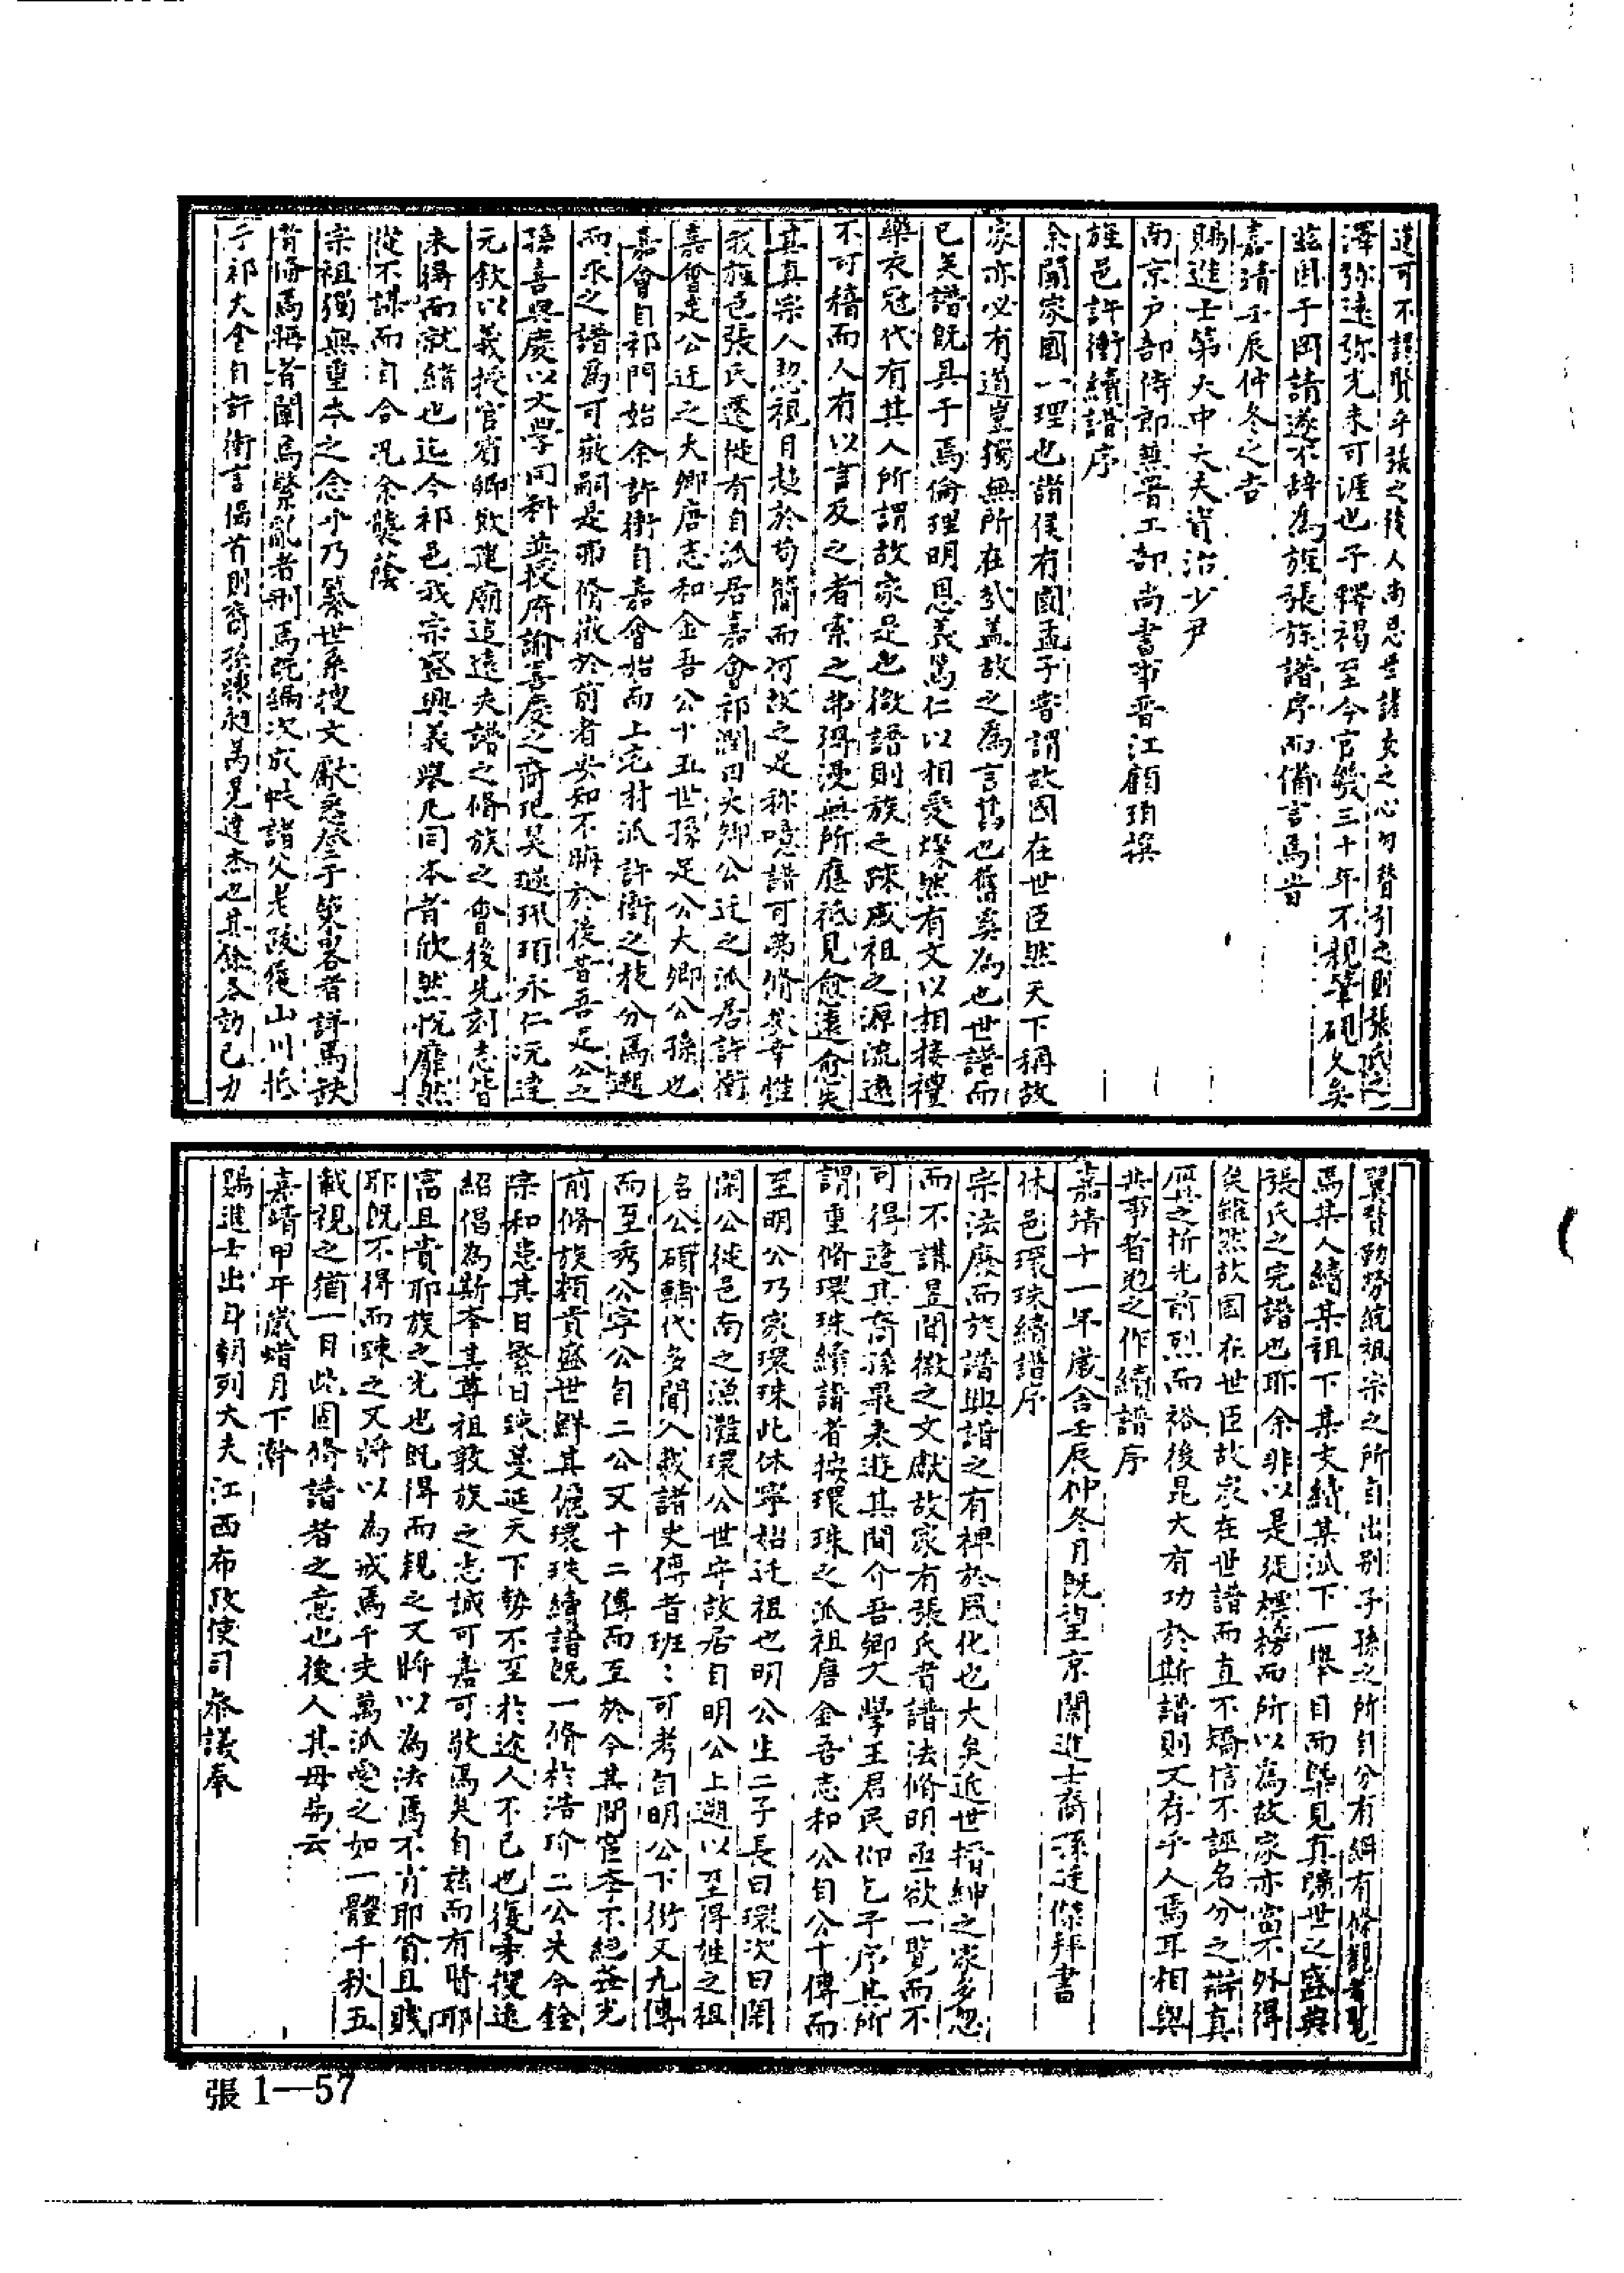 道可不謂賢乎張之後人尚思世講交之心勿替引之則張氏之
澤弥遠弥光未可涯也予釋褐至今官幾三十年不親筆硯久矣
茲因于岡請遂不辞為旌張族譜序而備言焉峕
嘉靖壬辰仲冬之吉
賜進士第大中大夫資治少尹
南京户部侍郎兼署工部尚書事晋江顧珀撰
旌邑許衝續譜序
余聞家國一理也諸侯有國孟子嘗謂故國在世臣然天下稱故
家亦必有道豈獨無所在㢤盖故之為言舊也舊奚為也世譜而
已矣譜旣具于焉倫理明恩義篤仁以相愛燦然有文以相接禮
樂衣冠代有其人所謂故家是也微譜則族之踈戚祖之源流遠
不可稽而人有以言及之者索之弗得漫無所應祗見愈遠愈失
其真宗人忽視日趍於苟簡而何故之足称噫譜可弗脩㢤幸惟
我旌邑張氏遷徙有自派居嘉會祁潤田大郷公迁之派居許衝
嘉會走公迁之大郷唐志和金吾公十五世孫足公大郷公孫也
嘉會自祁門始余許衝自嘉會始而上宅村派許衝之枝分焉遡
而求之譜為可徵嗣是弗脩徵於前者安知不晦於後昔吾足公之
孫喜與慶以文學同科並授府諭喜慶之裔玘昊璲珮珦永仁沅達
元敘以義授官賔郷飲建廟追遠夫譜之脩族之會後先刻志皆
未得而就緒也迄今祁邑我宗盛興義舉凡同本者欣然悅靡然
從不謀而自合况余襲蔭
宗祖獨無重本之念乎乃纂世系搜文獻悉登于策畧者詳焉缺
者脩焉晦者闡焉繁亂者刪焉旣編次成帙諸父老跋履山川抵
于祁大會自許衝言偈首則裔孫㻋昶萬見達杰也其餘各効已力
翼賛勷勞統祖宗之所自出别子孫之所自分有綱有條觀者見
焉某人續某祖下某支續某派下一舉目而槩見真曠世之盛典
張氏之完譜也耶余非以是徒標榜而所以為故家亦當不外得
矣雖然故國在世臣故家在世譜而直不矯信不誣名分之辯真
贋之析光前烈而裕後昆大有功於斯譜則又存乎人焉耳相與
共事者勉之作續譜序
嘉靖十一年歲舍壬辰仲冬月既望京闈進士裔孫廷傑拜書
休邑環珠續譜序
宗法廢而族譜興譜之有裨於風化也大矣近世搢紳之家多忽
而不講昱間撤之文獻故家有張氏者譜法脩明亟欲一覽而不
可得適其裔孫杲來遊其間介吾郷大學王君民仰乞予序其所
謂重脩環珠續譜者按環珠之派祖唐金吾志和公自公十傳而
至明公乃家環珠此休寧始迁祖也明公生二子長曰環次曰閑
閑公徙邑南之漁灘環公世守故居自明公上遡以至得姓之祖
名公碩輔代多聞人載諸史傳者班〻可考自明公下衍又九傳
而至秀公字公自二公又十二傳而至於今其間宦李不絕益光
前脩族頼貴盛世鮮其儷環珠續譜旣一脩於浩玠二公夫今銓
宗和患其日繁日踈蔓延天下勢不至於途人不已也復秉搜遠
紹倡為斯李其尊祖敦族之志誠可嘉可敬焉矣自茲而有賢耶
富且貴耶族之光也既得而親之又將以為法焉不肖耶貧且賤
耶旣不得而踈之又將以為戒焉千支萬派受之如一體千秋五
載視之猶一日此固脩譜者之意也後人其毋茀云
嘉靖甲午歲蜡月下澣
賜進士出身朝列大夫江西布政使司叅議奉
張1—57